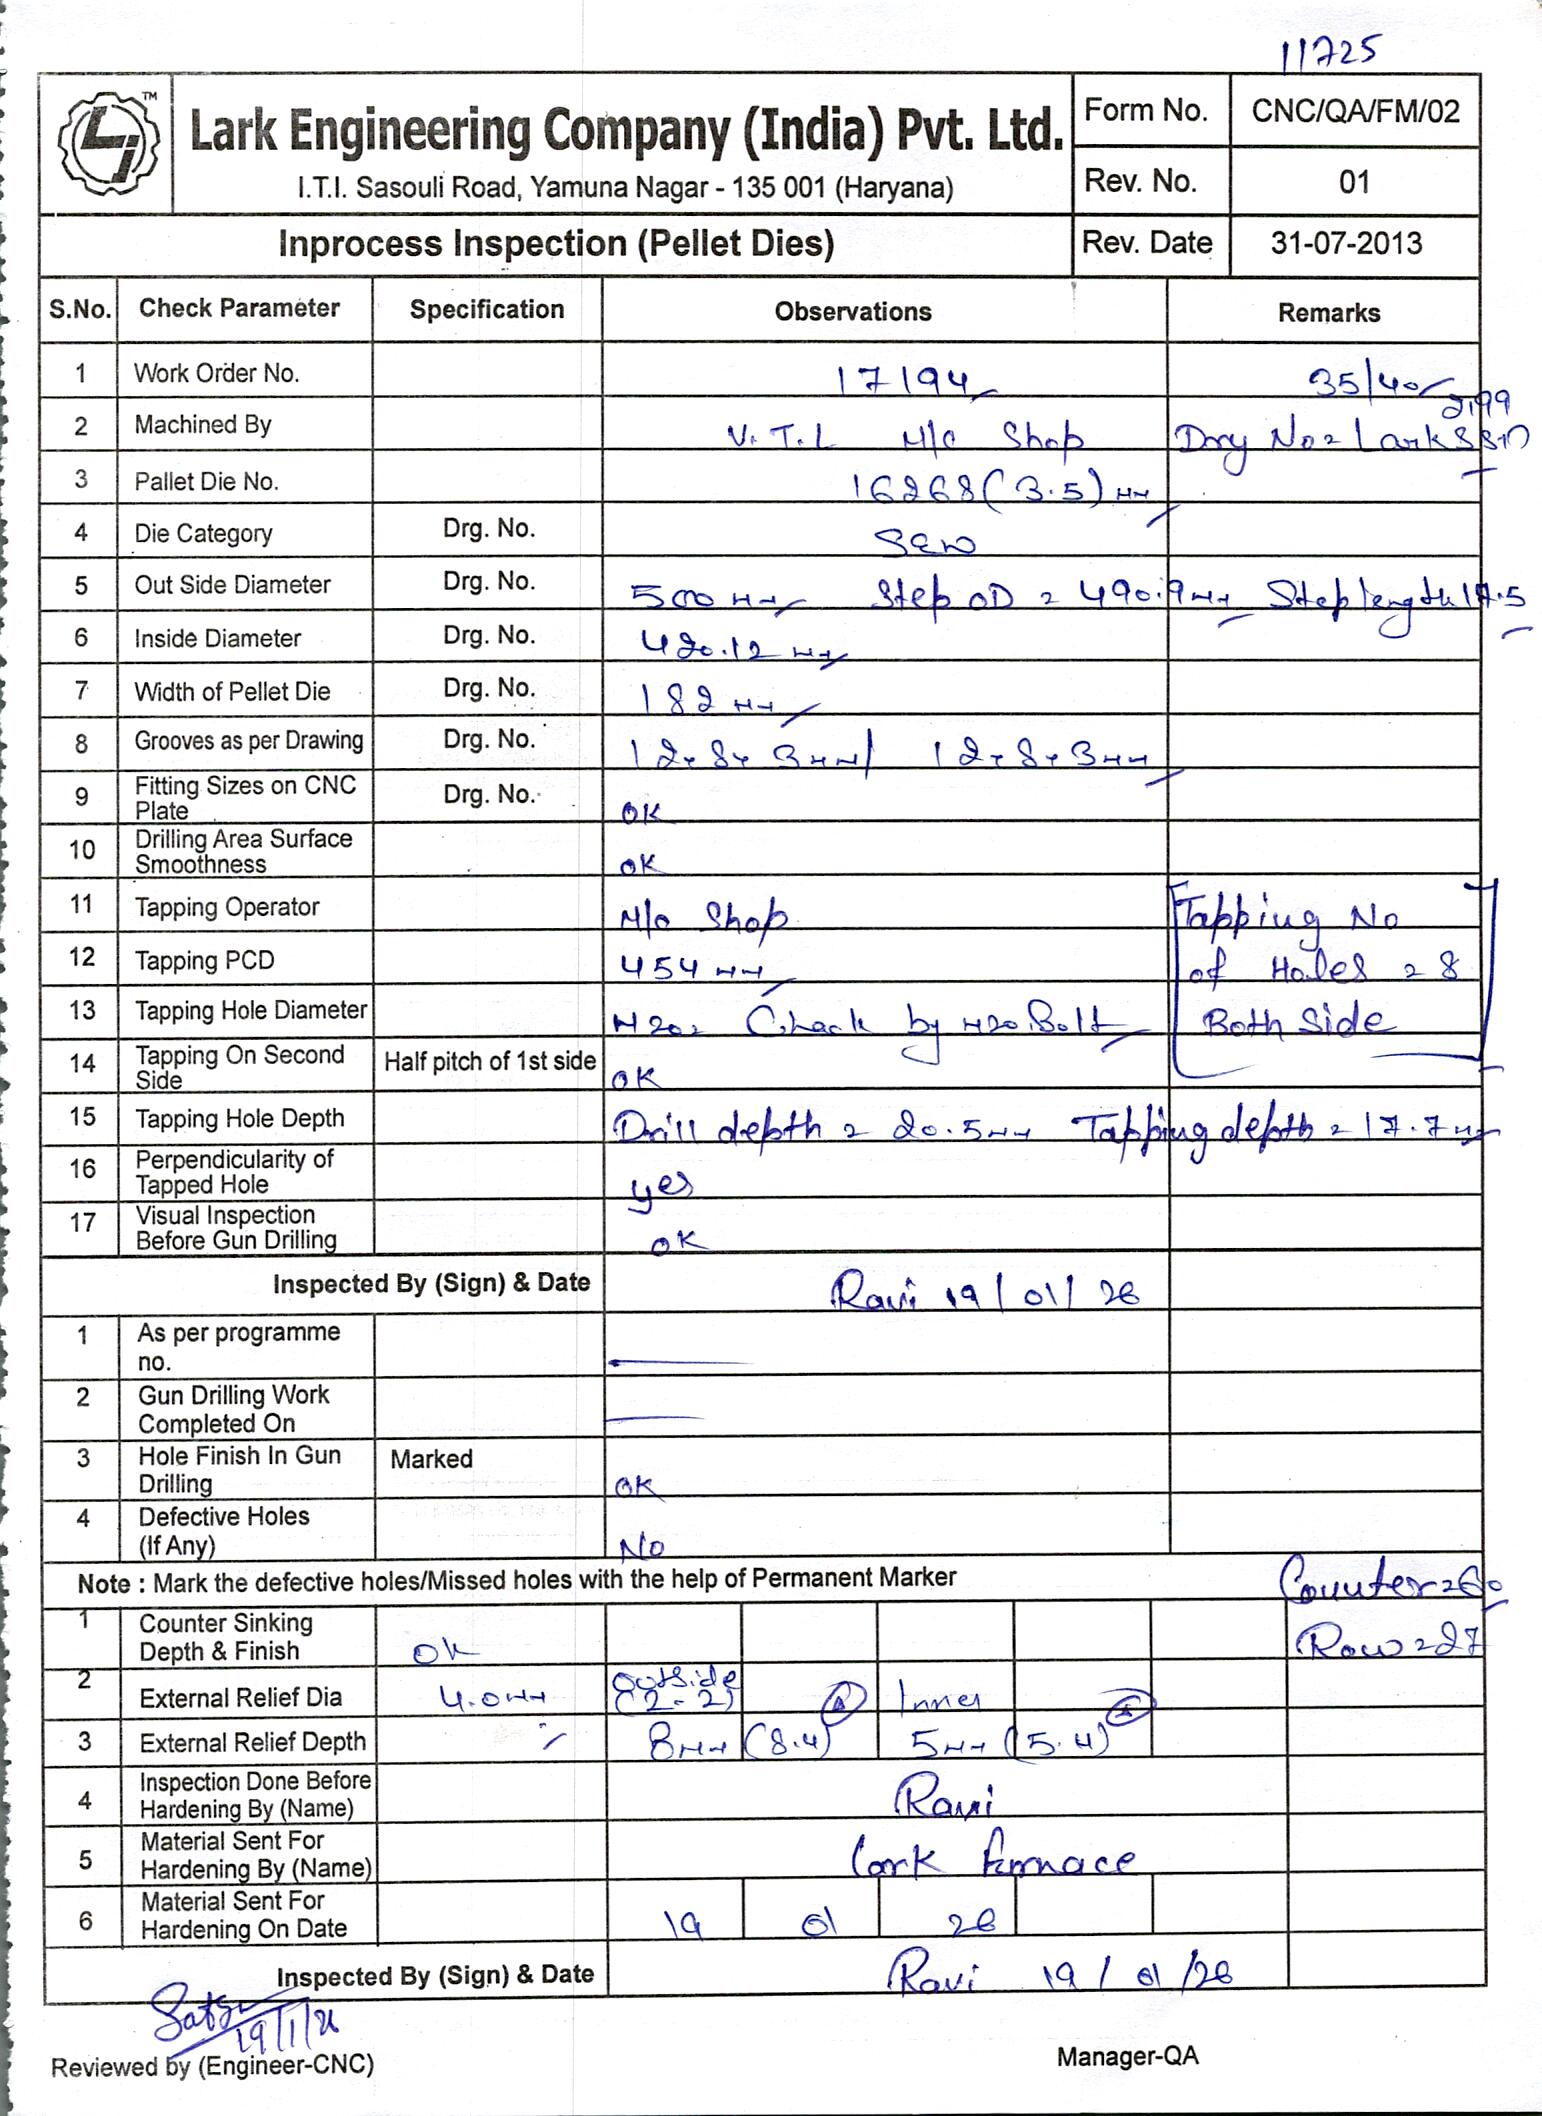 11725
TM
Lark Engineering Company (India) Pvt. Ltd.
I.T.I. Sasouli Road, Yamuna Nagar - 135 001 (Haryana)
Form No. CNC/QA/FM/02
Rev. No. 01
Inprocess Inspection (Pellet Dies) Rev. Date 31-07-2013
S.No. Check Parameter Specification Observations Remarks
1 Work Order No. 17194 35/40
2 Machined By V.T.L M/c Shop No = Lark
3 Pallet Die No. 16268 (3.5) mm
4 Die Category Drg. No.
5 Out Side Diameter Drg. No. 500 mm Step OD = 490.9 mm Step length 17.5
6 Inside Diameter Drg. No. 420.12 mm
7 Width of Pellet Die Drg. No. 182 mm
8 Grooves as per Drawing Drg. No. 12×8×3mm/ 12×8×3mm
9 Fitting Sizes on CNC Plate Drg. No. OK
10 Drilling Area Surface Smoothness OK
11 Tapping Operator M/c Shop Tapping No
12 Tapping PCD 454 mm of Holes = 8
13 Tapping Hole Diameter M20= Check by M20 Bolt Both Side
14 Tapping On Second Side Half pitch of 1st side OK
15 Tapping Hole Depth Drill depth = 20.5mm Tapping depth = 17.7mm
16 Perpendicularity of Tapped Hole yes
17 Visual Inspection Before Gun Drilling OK
Inspected By (Sign) & Date Ravi 19/01/26
1 As per programme no.
2 Gun Drilling Work Completed On
3 Hole Finish In Gun Drilling Marked OK
4 Defective Holes (If Any) No
Note : Mark the defective holes/Missed holes with the help of Permanent Marker Counter=60
1 Counter Sinking Depth & Finish OK Row=27
2 External Relief Dia 4.0mm Outside (2-2) Inner
3 External Relief Depth 8mm (8.4) 5mm (5.4)
4 Inspection Done Before Hardening By (Name) Ravi
5 Material Sent For Hardening By (Name) Lark furnace
6 Material Sent For Hardening On Date 19 01 26
Inspected By (Sign) & Date Ravi 19/01/26
19/1/26
Reviewed by (Engineer-CNC) Manager-QA